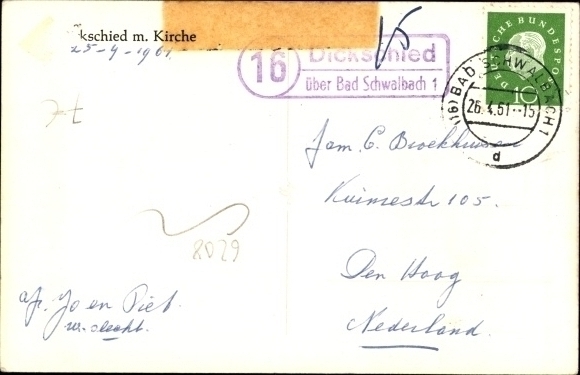 kschied m. Kirche
25-4-1961
16
Dickschied
über Bad Schwalbach 1
15
DEUTSCHE BUNDESPOST
10
(16) BAD SCHWALBACH 1
26.4.61.-15
d
Fam. C. Broekhuizen
Kuinrestr 105.
Den Haag
Nederland.
8029
afz. Jo en Piet